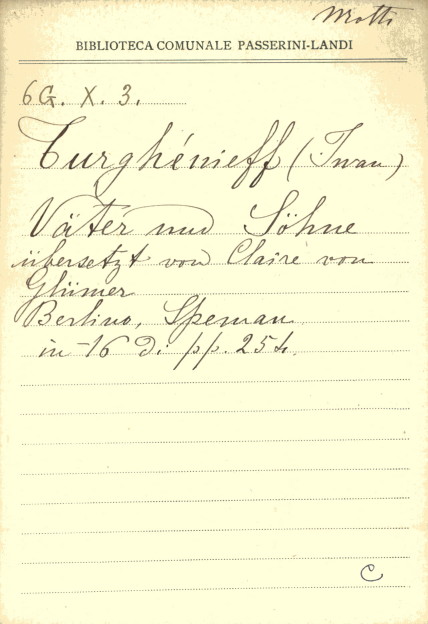 Motti
BIBLIOTECA COMUNALE PASSERINI-LANDI
6G. X. 3.
Turghénieff (Iwan)
Väter und Söhne
übersetzt von Claire von
Glümer
Berlino, Speman
in-16 di pp. 254.
C